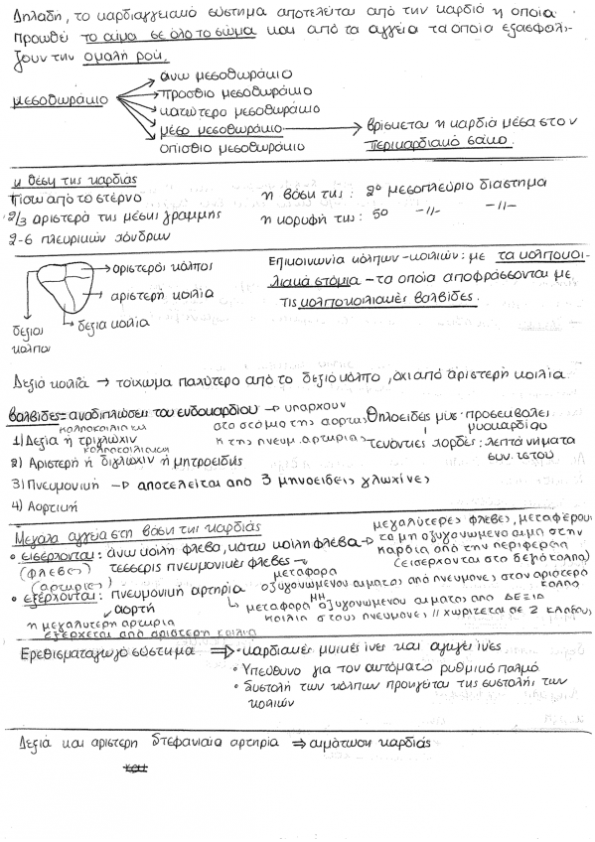 Δηλαδή, το καρδιαγγειακό σύστημα αποτελείται από την καρδιά η οποία
προωθεί το αίμα σε όλο το σώμα και από τα αγγεία τα οποία εξασφαλί-
ζουν την ομαλή ροή.
άνω μεσοθωράκιο
πρόσθιο μεσοθωράκιο
μεσοθωράκιο
κατώτερο μεσοθωράκιο
μέσο μεσοθωράκιο → βρίσκεται η καρδιά μέσα στον
οπίσθιο μεσοθωράκιο περικαρδιακό σάκο.
η θέση της καρδιάς
πίσω από το στέρνο η βάση της: 2ο μεσοπλεύριο διάστημα
2/3 αριστερά της μέσης γραμμής η κορυφή της: 5ο -//- -//-
2-6 πλευρικών χόνδρων
αριστερός κόλπος
αριστερή κοιλία
δεξιά κοιλία
δεξιοί
κόλποι
Επικοινωνία κόλπων-κοιλιών: με τα κολποκοι-
λιακά στόμια - τα οποία αποφράσσονται με
τις κολποκοιλιακές βαλβίδες.
Δεξιά κοιλία → τοίχωμα παχύτερο από το δεξιό κόλπο, όχι από αριστερή κοιλία
βαλβίδες = αναδιπλώσεις του ενδοκαρδίου → υπάρχουν
στο στόμα της αορτής
κ της πνευμ. αρτηρίας
Θηλοειδείς μύς: προσεκβολές
μυοκαρδίου
τενόντιες χορδές: λεπτά νημάτα
συν. ιστού
κολποκοιλιακη
1) Δεξία ή τριγλώχιν
κολποκοιλιακη
2) Αριστερή ή διγλώχιν ή μητροειδής
3) Πνευμονική → αποτελείται από 3 μηνοειδείς γλωχίνες
4) Αορτική
Μεγάλα αγγεία στη βάση της καρδιάς
• εισέρχονται: άνω κοίλη φλέβα, κάτω κοίλη φλέβα →
μεγαλύτερες φλέβες, μεταφέρουν
το μη οξυγονωμένο αίμα στην
καρδιά από την περιφέρεια
(εισέρχονται στο δεξιό κόλπο)
(φλέβες) τέσσερις πνευμονικές φλέβες →
μεταφορά
οξυγονωμένου αίματος από πνεύμονες στον αριστερό
κόλπο
(αρτηρίες)
• εξέρχονται: πνευμονική αρτηρία
μεταφορά μη οξυγονωμένου αίματος από δεξιά
κοιλία στους πνεύμονες // χωρίζεται σε 2 κλάδους
αορτή
η μεγαλύτερη αρτηρία
εξέρχεται από αριστερή κοιλία
Ερεθισματαγωγό σύστημα ⇒ • καρδιακές μυικές ίνες και αγωγές ίνες
• Υπεύθυνο για τον αυτόματο ρυθμικό παλμό
• Συστολή των κόλπων προηγείται της συστολής των
κοιλιών
Δεξιά και αριστερή στεφανιαία αρτηρία ⇒ αιμάτωση καρδιάς
και